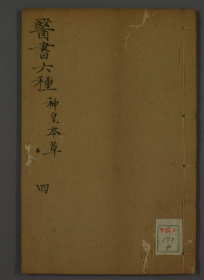 醫書六種
神皇本草
四